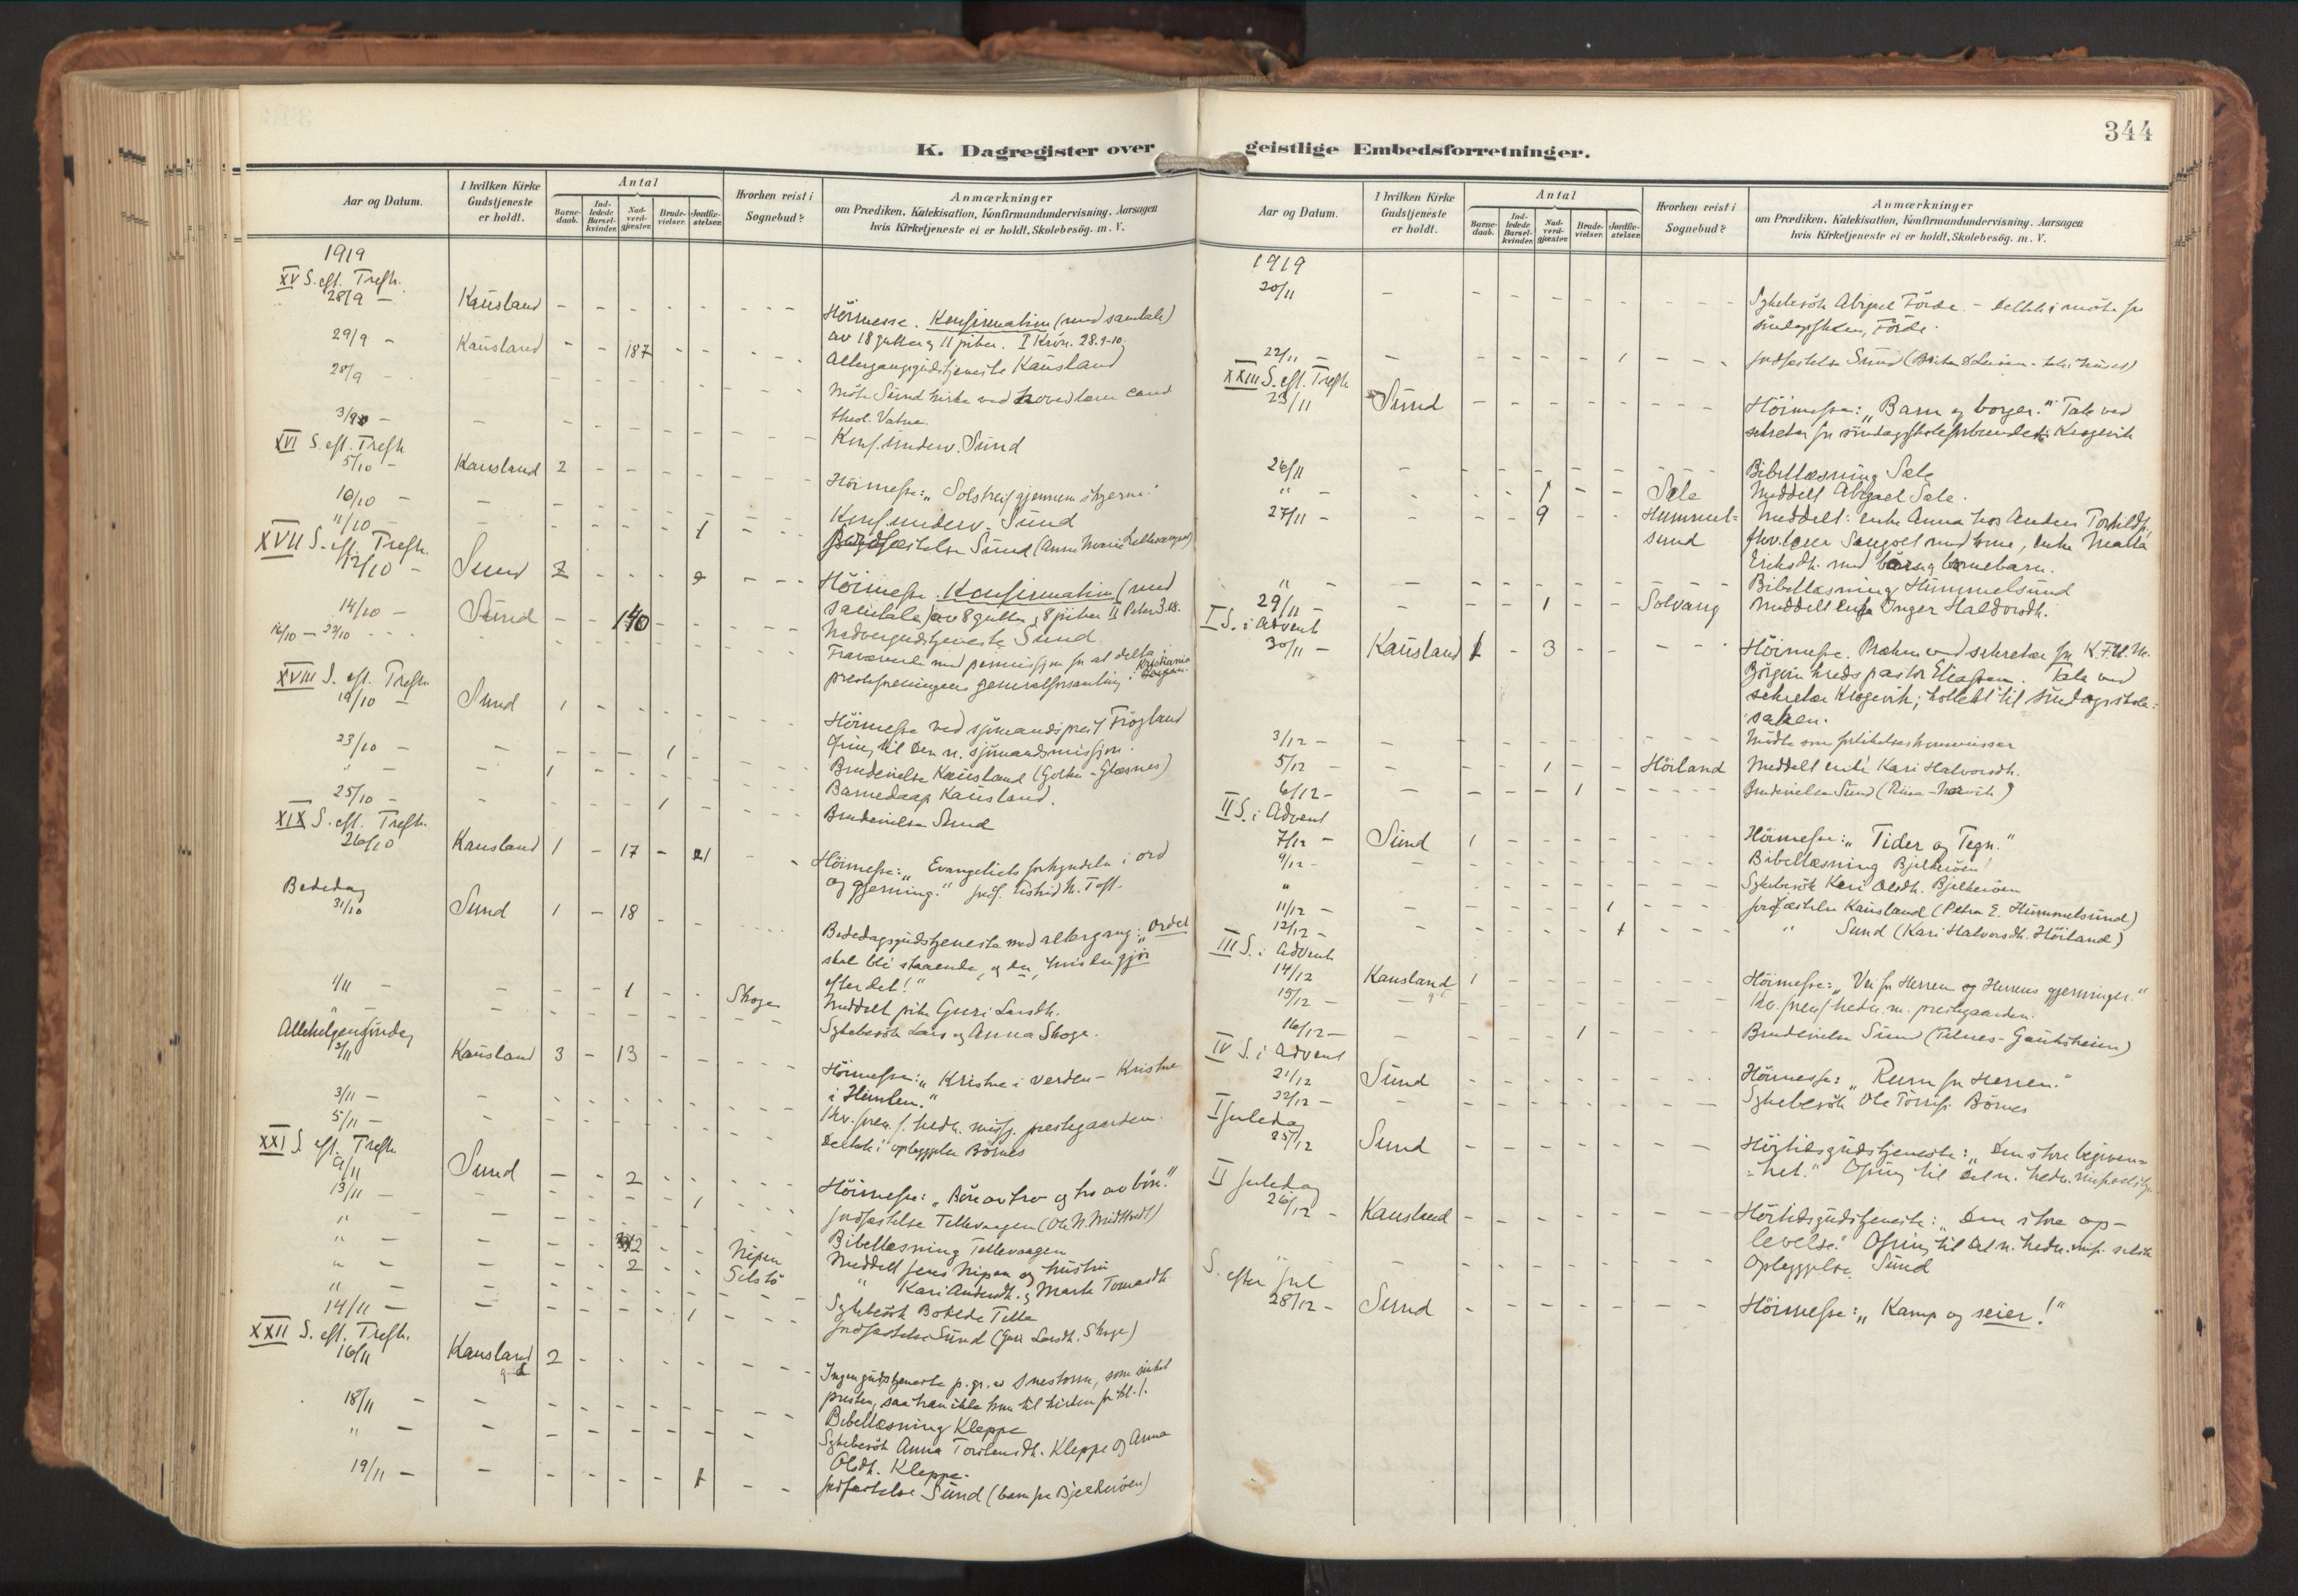 344
K. Dagregister over
geistlige Embedsforretninger.
Aar og Datum.
I hvilken Kirke
Gudstjeneste
er holdt.
Antal
Barne-
daab.
Ind-
ledede
Barsel-
kvinder.
Nad-
verd-
gjæster.
Brude-
vielser.
Jordfæ-
stelser.
Hvorhen reist i
Sognebud?
Anmærkninger
om Prædiken, Katekisation, Konfirmandundervisning, Aarsagen
hvis Kirketjeneste ei er holdt, Skolebesög. m. V.
1919
XV S. eft. Trefh.
28/9 – Kausland
Höimesse. Konfirmation (med samtale)
av 18 gutter og 11 piker. I Krön. 28.9-10.
29/9 – Kausland 187
Altergangsgudstjeneste Kausland
28/9
Möte Sund kirke ved cand
theol. Vatne.
Konf. underv. Sund
XVI S. eft. Trefh.
5/10 – Kausland 2
Höimesse: „Solstreif gjennem skyerne."
10/10 –
Konf. underv. Sund
11/10 – 1
Jordfæstelse Sund (Anne Marie
XVII S. eft. Trefh.
12/10 – Sund 2
Höimesse. Konfirmation (med
samtale) av 8 gutter, 8 piker II Peter 3.18.
14/10 – Sund 140
Nadvergudstjeneste Sund
16/10 – 22/10
Fraværende med permisjon for at delta i
presteforeningens generalforsamling i Kristiania
XVIII S. eft. Trefh.
19/10 – Sund 1
Höimesse ved sjömandsprest Frögland
Ofring til Den n. sjömandsmisjon.
23/10 – 1
Brudevielse Kausland (Golten - Glæsnes)
" – 1
Barnedaap Kausland.
25/10 – 1
Brudevielse Sund
XIX S. eft. Trefh.
26/10 Kausland 1 – 17
Höimesse: „Evangeliets forkyndelse i ord
og gjerning."
Bededag
31/10 Sund 1 – 18
Bededagsgudstjeneste med altergang: „Ordet
skal bli staaende, og du, hvis du gjör
efter det!"
1/11 – 1 Skoge
Meddelt pike Guri Larsdh.
Sykebesök Lars og Anna Skoge.
Allehelgensöndag
2/11 Kausland 3 – 13
Höimesse: „Kristne i verden – Kristne
i Himlen."
3/11 –
Kv. foren. f. hedn. missj. prestegaarden.
5/11 –
Deltok i oplæggelse Börnes
XXI S. eft. Trefh.
9/11 Sund 2
Höimesse: „Bön av tro og tro av bön."
13/11 – 1
Jordfæstelse Tellevaagen
" Bibellæsning Tellevaagen
" 2 Nipen
Meddelt Jens Nipen og hustru
" 2 Selstö
" Kari Andersdh. og Marte Tomasdh.
" Sykebesök Botilde Telle
14/11 – 1
Jordfæstelse Sund (Guri Larsdh. Skoge)
XXII S. eft. Trefh.
16/11 Kausland 2
Ingen gudstjeneste p. gr. av snestorm, som sinket
presten, saa han ikke kom til kirken för kl. 1.
18/11 –
Bibellæsning Kleppe
" Sykebesök Anna Torstensdh. Kleppe og Anna
Olsdh. Kleppe.
19/11 – 1
Jordfæstelse Sund (barn fra Bjelkeröen)
Aar og Datum.
I hvilken Kirke
Gudstjeneste
er holdt.
Antal
Barne-
daab.
Ind-
ledede
Barsel-
kvinder.
Nad-
verd-
gjæster.
Brude-
vielser.
Jordfæ-
stelser.
Hvorhen reist i
Sognebud?
Anmærkninger
om Prædiken, Katekisation, Konfirmandundervisning, Aarsagen
hvis Kirketjeneste ei er holdt, Skolebesög. m. V.
1919
20/11 –
Sykebesök Abigael Förde. – Deltok i möte for
söndagsskolen, Förde.
22/11 – 1
Jordfæstelse Sund
XXIII S. eft. Trefh.
23/11 Sund
Höimesse: „Barn og borger." Tale ved
sekretær for söndagsskoleforbundet Krogevik
26/11
Bibellæsning Sæle
" – 1 Sæle
Meddelt Abigael Sæle.
27/11 – 9 Hummel=
sund
Meddelt: enke Anna hos Anders Torkilds.
fhv. lærer Sangolt med kone, enke Malla
Eriksdh. med barn og barnebarn.
" –
Bibellæsning Hummelsund
29/11 – 1 Solvang
Meddelt enke Inger Haldorsdh.
I S. i Advent
30/11 – Kausland 1 – 3
Höimesse. Præken ved sekretær for K.F.U.M.
Björgvin kreds pastor Eliassen. Tale ved
sekretær Krogevik; kollekt til söndagsskole=
saken.
3/12 –
Mödte som forlikelseskommissær
5/12 – 1 Höiland
Meddelt enke Kari Halvorsdh.
6/12 – 1
Brudevielse Sund
II S. i Advent
7/12 – Sund 1
Höimesse: „Tider og Tegn."
9/12 –
Bibellæsning Bjelkeröen
" Sykebesök Kari Olsdh. Bjelkeröen
11/12 – 1
Jordfæstelse Kausland (Petra E. Hummelsund)
12/12 – 1
" Sund (Kari Halvorsdh. Höiland)
III S. i Advent
14/12 Kausland 1
Höimesse: „Vei for Herren og Herrens gjerninger."
15/12 –
Kv. foren. f. hedn. m. prestegaarden.
16/12 – 1
Brudevielse Sund (Telnes - Gauksheim)
IV S. i Advent
21/12 Sund
Höimesse: „Rum for Herren."
22/12 –
Sykebesök Ole Börnes
I Juledag
25/12 Sund
Höitidsgudstjeneste: „Den store begiven=
=het." Ofring til det n. hedn. misj.selsk.
II Juledag
26/12 – Kausland
Höitidsgudstjeneste: „Den store op-
levelse." Ofring til det n. hedn. misj. selsk.
"
Oplæggelse Sund
S. efter Jul
28/12 – Sund
Höimesse: „Kamp og seier!"